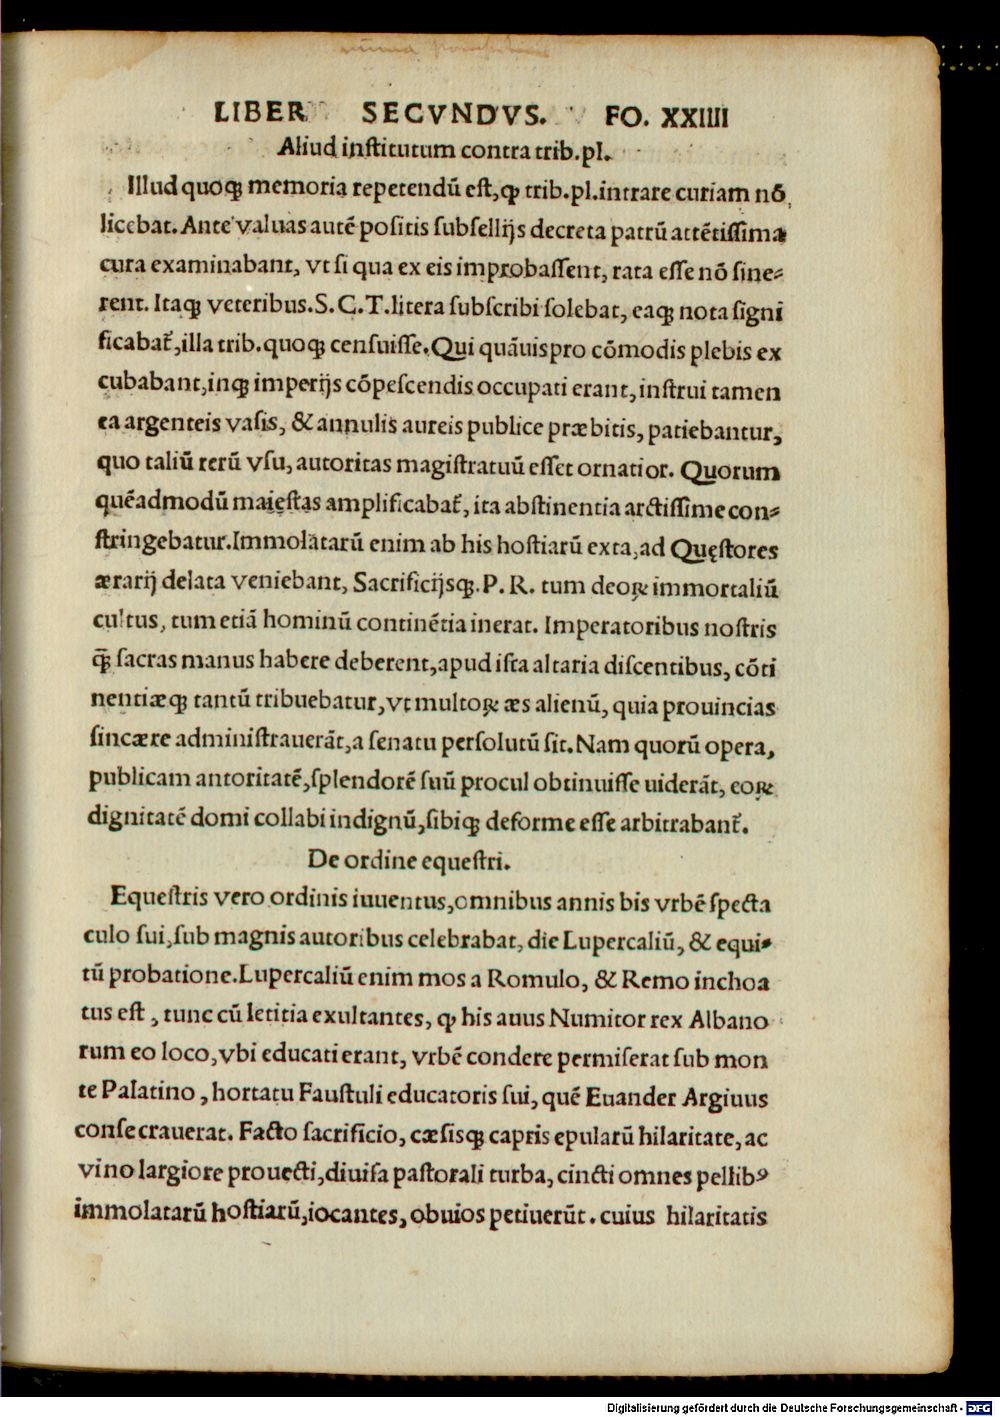 LIBER SECVNDVS. FO. XXIIII
Aliud inſtitutum contra trib.pl.
Illud quoqꝫ memoria repetendū eſt,ꝙ trib.pl.intrare curiam nō
licebat. Ante valuas autē poſitis ſubſellijs decreta patrū attētiſſima
cura examinabant, vt ſi qua ex eis improbaſſent, rata eſſe nō ſine⸗
rent. Itaqꝫ veteribus.S.C.T.litera ſubſcribi ſolebat, eaqꝫ nota ſigni
ficabat᷑,illa trib.quoqꝫ cenſuiſſe.Qui quāuis pro cōmodis plebis ex
cubabant,inqꝫ imperijs cōpeſcendis occupati erant,inſtrui tamen
ea argenteis vaſis, & annulis aureis publice præbitis, patiebantur,
quo taliū rerū vſu, autoritas magiſtratuū eſſet ornatior. Quorum
quēadmodū maieſtas amplificabat᷑, ita abſtinentia arctiſſime con⸗
ſtringebatur.Immolatarū enim ab his hoſtiarū exta,ad Quęſtores
ærarij delata veniebant, Sacrificijsqꝫ.P.R. tum deoꝝ immortaliū
cultus, tum etiā hominū continētia inerat. Imperatoribus noſtris
qꝫ̄ ſacras manus habere deberent,apud iſta altaria diſcentibus, cōti
nentiæqꝫ tantū tribuebatur,vt multoꝝ æs alienū, quia prouincias
ſincære adminiſtrauerāt,a ſenatu perſolutū ſit.Nam quorū opera,
publicam antoritatē,ſplendorē ſuū procul obtinuiſſe uiderāt, eoꝝ
dignitatē domi collabi indignū,ſibiqꝫ deforme eſſe arbitrabant᷑.
De ordine equeſtri.
Equeſtris vero ordinis iuuentus,omnibus annis bis vrbē ſpecta
culo ſui,ſub magnis autoribus celebrabat, die Lupercaliū, & equi⸗
tū probatione.Lupercaliū enim mos a Romulo, & Remo inchoa
tus eſt , tunc cū letitia exultantes, ꝙ his auus Numitor rex Albano
rum eo loco,vbi educati erant, vrbē condere permiſerat ſub mon
te Palatino , hortatu Fauſtuli educatoris ſui, quē Euander Argiuus
conſecrauerat. Facto ſacrificio, cæſisqꝫ capris epularū hilaritate, ac
vino largiore prouecti,diuiſa paſtorali turba, cincti omnes pellibꝰ
immolatarū hoſtiarū,iocantes, obuios petiuerūt . cuius hilaritatis
Digitalisierung gefördert durch die Deutsche Forschungsgemeinschaft - DFG